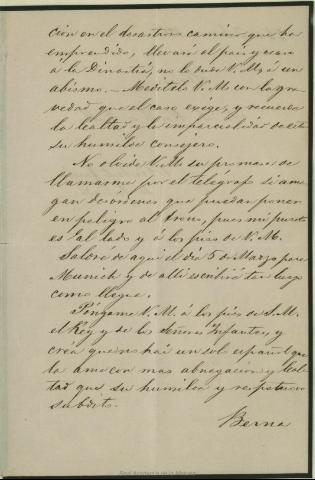 ción en el desastroso camino que ha
emprendido, llevará el pais y acaso
á la Dinastía, no lo dude V. M. á un
abismo. — Meditelo V. M. con la gra-
vedad que el caso exige, y recuerde
la lealtad y la imparcialidad de este
su humilde consejero.
No olvide V. M. su promesa de
llamarme por el telégrafo si ame-
gan desórdenes que puedan poner
en peligro al trono, pues mi puesto
es al lado y á los pies de V. M.
Saldré de aquí el día 5 de Marzo para
Munich y de allí escribiré tan luego
como llegue.
Póngame V. M. á los pies de S. M.
el Rey y de los Señores Infantes, y
crea que no hai un solo español que
la ame con mas abnegacion y leal-
tad que su humilde y respetuoso
subdito.
Berna